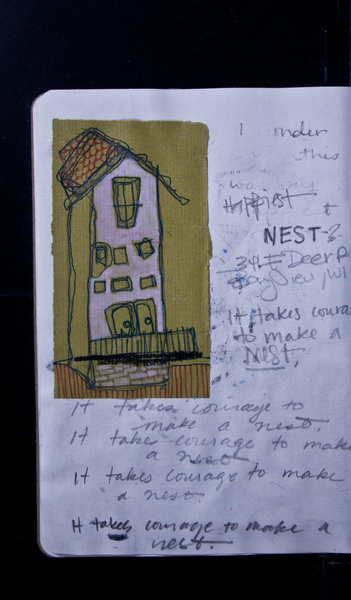 I wonder
this
was my
Happiest
NEST?
341 E Deer P
Bay View, WI
It takes coura
to make a
NEST.
It takes courage to
make a nest.
It takes courage to make
a nest
It takes courage to make
a nest.
It takes courage to make a
nest.